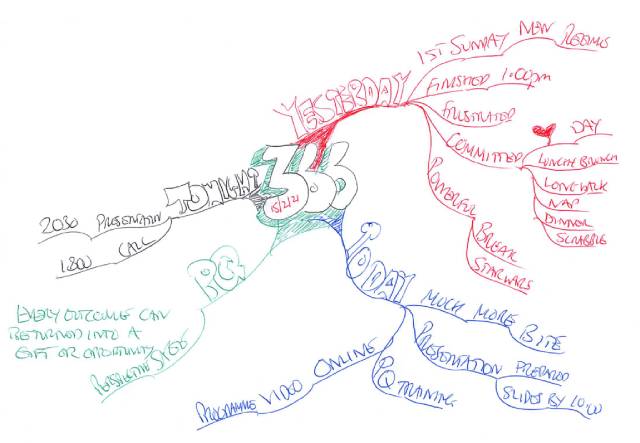 YESTERDAY
1ST SUNDAY NEW REGIME
FINISHED 1.00pm
FRUSTRATED
COMMITTED
DAY
LUNCH/BRUNCH
LONG WALK
NAP
DINNER
SCRABBLE
POWERFUL
BREAK
STAR WARS
366
15/2/21
TODAY
MUCH MORE BITE
PRESENTATION PREPARED
SLIDES BY 10:00
PQ TRAINING
PROGRAMME VIDEO ONLINE
PQ
PERSPECTIVE
EVERY OUTCOME CAN
BE TURNED INTO A
GIFT OR OPPORTUNITY
TONIGHT
2030 PRESENTATION
1800 CALL